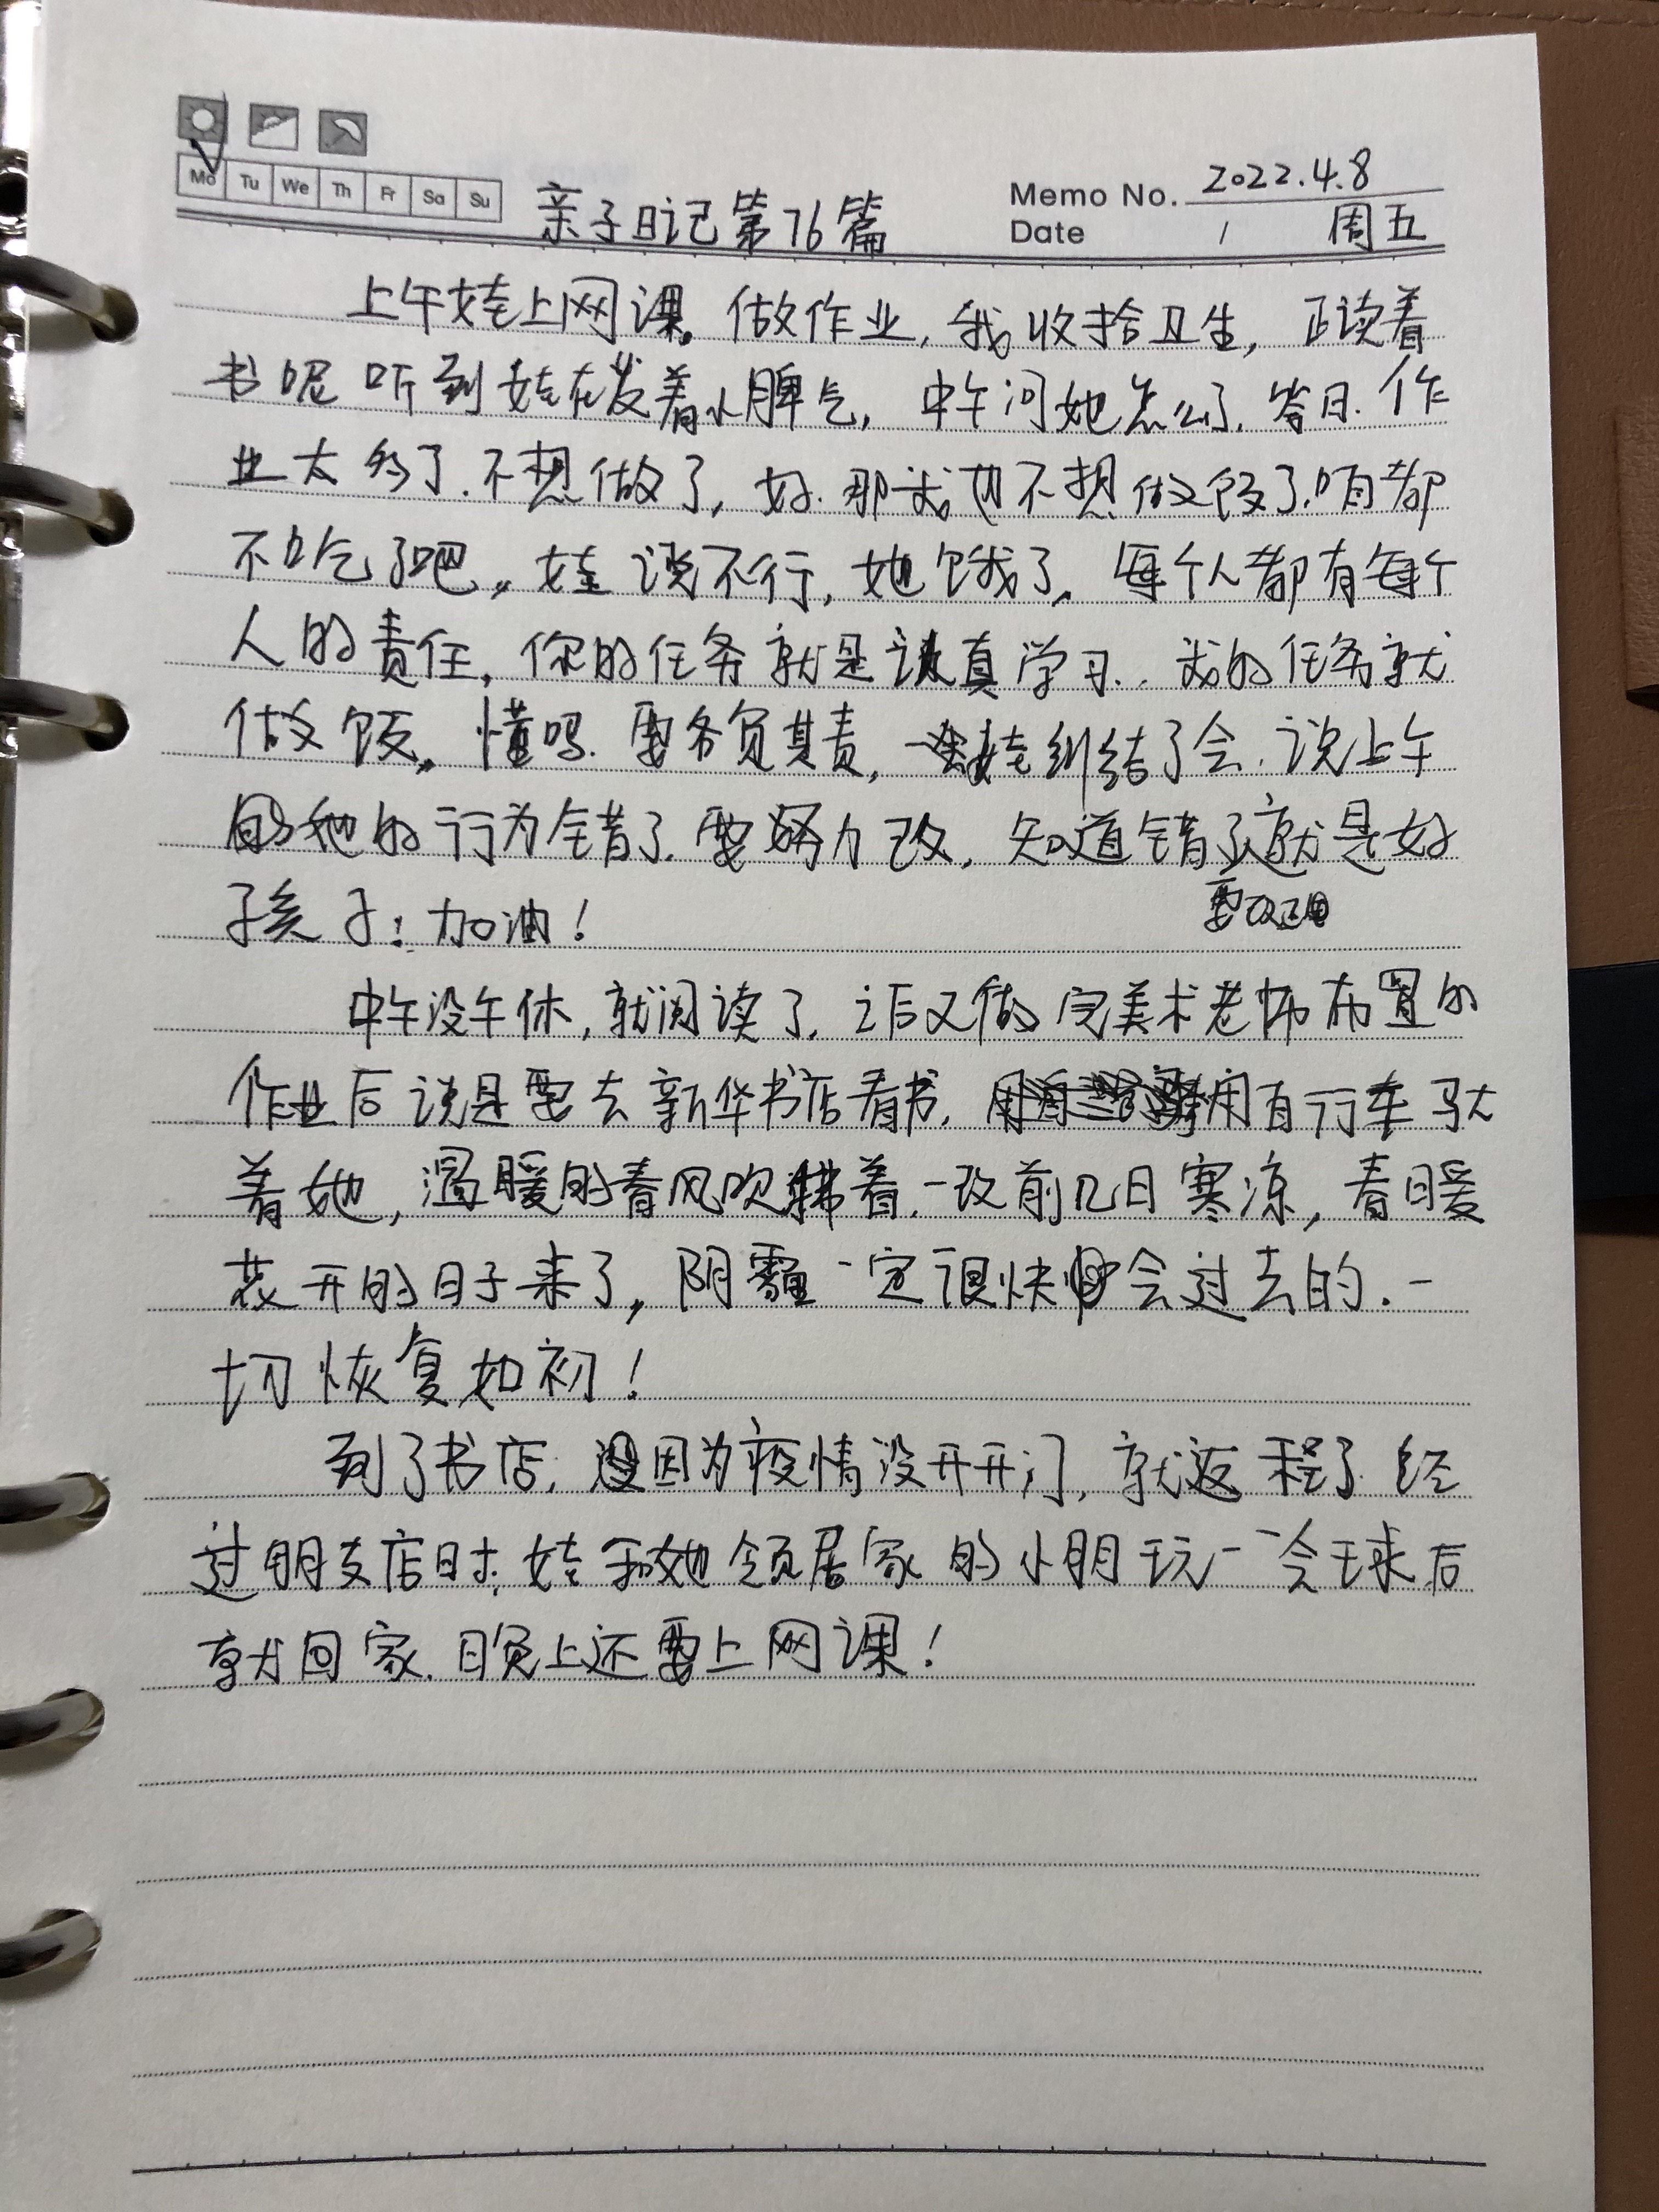 Mo Tu We Th Fr Sa Su
亲子日记第76篇
Memo No. 2022.4.8
Date / 周五
上午娃上网课,做作业,我收拾卫生,正读着
书呢听到娃在发着小脾气,中午问她怎么了.答曰.作
业太多了.不想做了,好.那我也不想做饭了.咱都
不吃了吧。娃说不行,她饿了。每个人都有每个
人的责任,你的任务就是认真学习.我的任务就
做饭。懂吗.要各负其责,娃纠结了会.说上午
她的行为错了.要努力改,知道错了就是好
要改正
孩子!加油!
中午没午休,就阅读了.之后又做完美术老师布置的
作业后说是要去新华书店看书,用自行车驮
着她,温暖的春风吹拂着.一改前几日寒凉,春暖
花开的日子来了,阴霾一定很快会过去的.一
切恢复如初!
到了书店,因为疫情没开开门,就返程了.经
过朋友店时.娃和她领居家的小朋玩一会球后
就回家.晚上还要上网课!